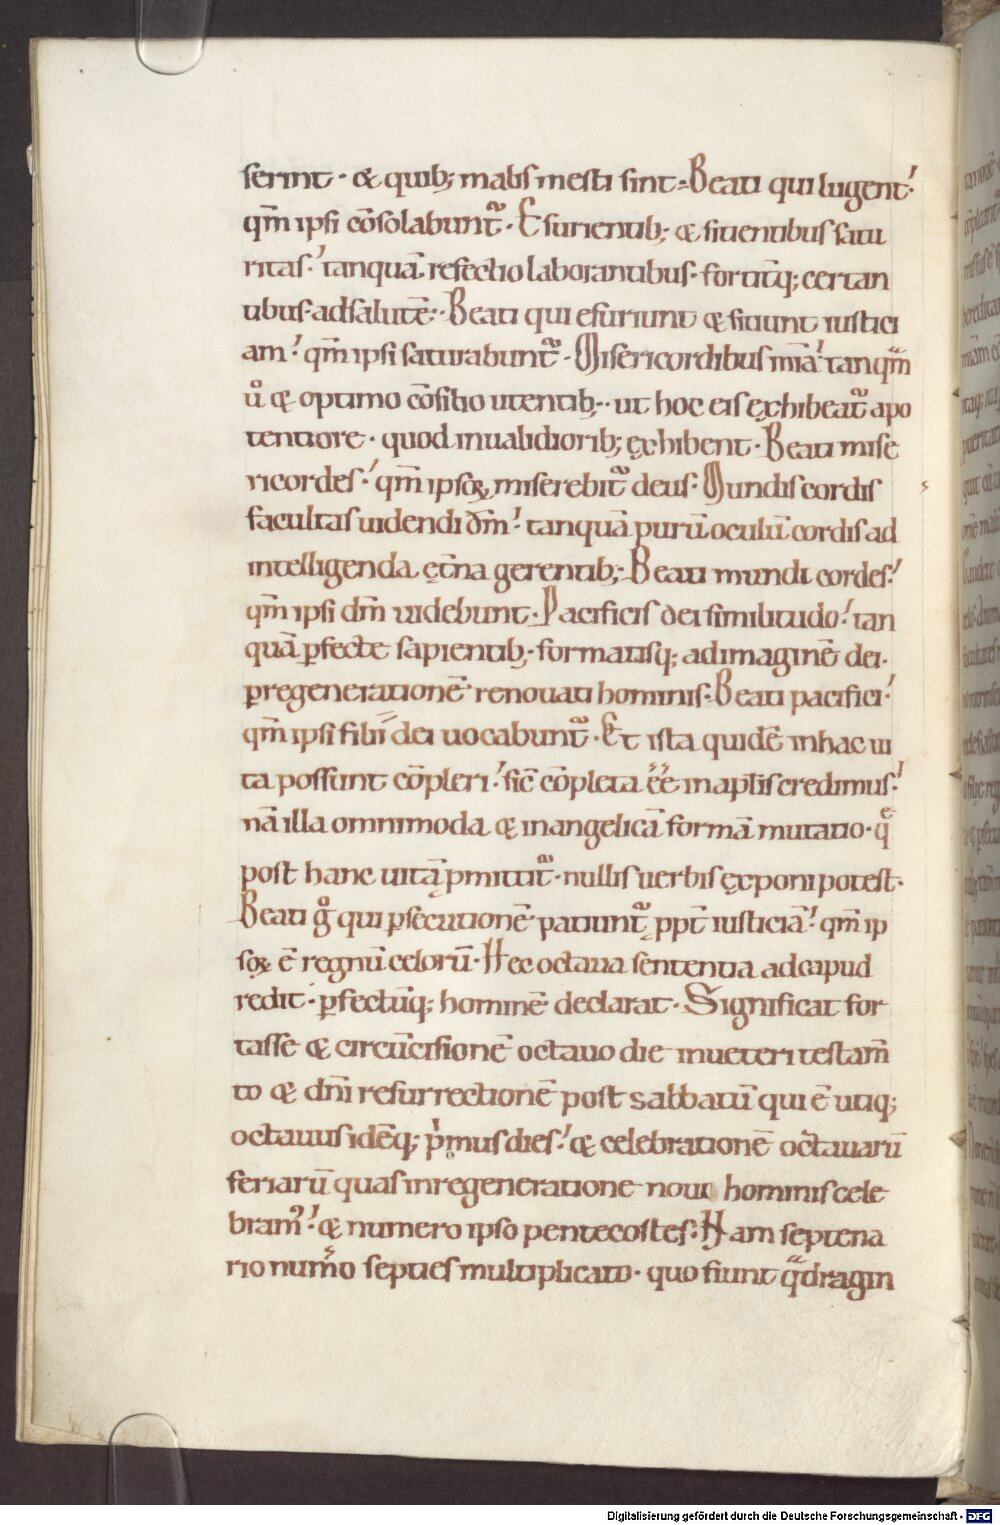 serint · & quib; malis mesti sint · Beati qui lugent ·
qm̄ ipsi cōsolabunt᷑ · Esurientib; & sitientibus satu
ritas · tanquā refectio laborantibus · fortit̄q; certan
tibus · ad salutē · Beati qui esuriunt & sitiunt iustici
am · qm̄ ipsi saturabunt᷑ · Misericordibus mīa tanqm̄
uͦ & optimo cōsilio utentib; · ut hoc eis ęxhibeat᷑ a po
tentiore · quod inualidiorib; ęxhibent · Beati mise
ricordes · qm̄ ipsoꝝ miserebit᷑ deus · Mundis cordis
facultas uidendi dm̄ · tanquā purū oculū cordis ad
intelligenda ęt̄na gerentib; · Beati mundi cordes ·
qm̄ ipsi dm̄ uidebunt · Pacificis dei similitudo · tan
quā ꝑfecte sapientib; · formatisq; ad imaginē dei ·
ꝑ regenerationē renouati hominis · Beati pacifici ·
qm̄ ipsi filii dei uocabunt᷑ · Et ista quidē in hac ui
ta possunt cōpleri · sic̄ cōpleta ee᷒ in aplīs credimus ·
nā illa omnimoda & in angelicā formā mutatio · qͤ
post hanc uitā ꝓmittit᷑ · nullis uerbis ęxponi potest ·
Beati gͦ qui ꝑsecutionē patiunt᷑ ꝓpt̄ iusticiā · qm̄ ip
soꝝ ē regnū celorū · Hec octaua sententia ad capud
redit · ꝑfectūq; hominē declarat · Significat for
tasse & circūcisionē octauo die in ueteri testam̄
to & dn̄i resurrectionē post sabbatū qui ē utiq;
octauus idēq; pͥmus dies · & celebrationē octauarū
feriarū quas in regeneratione noui hominis cele
bramꝰ · & numero ipso pentecostes · Nam septena
rio num̄o septies multiplicato · quo fiunt qͣdragin
Digitalisierung gefördert durch die Deutsche Forschungsgemeinschaft - DFG